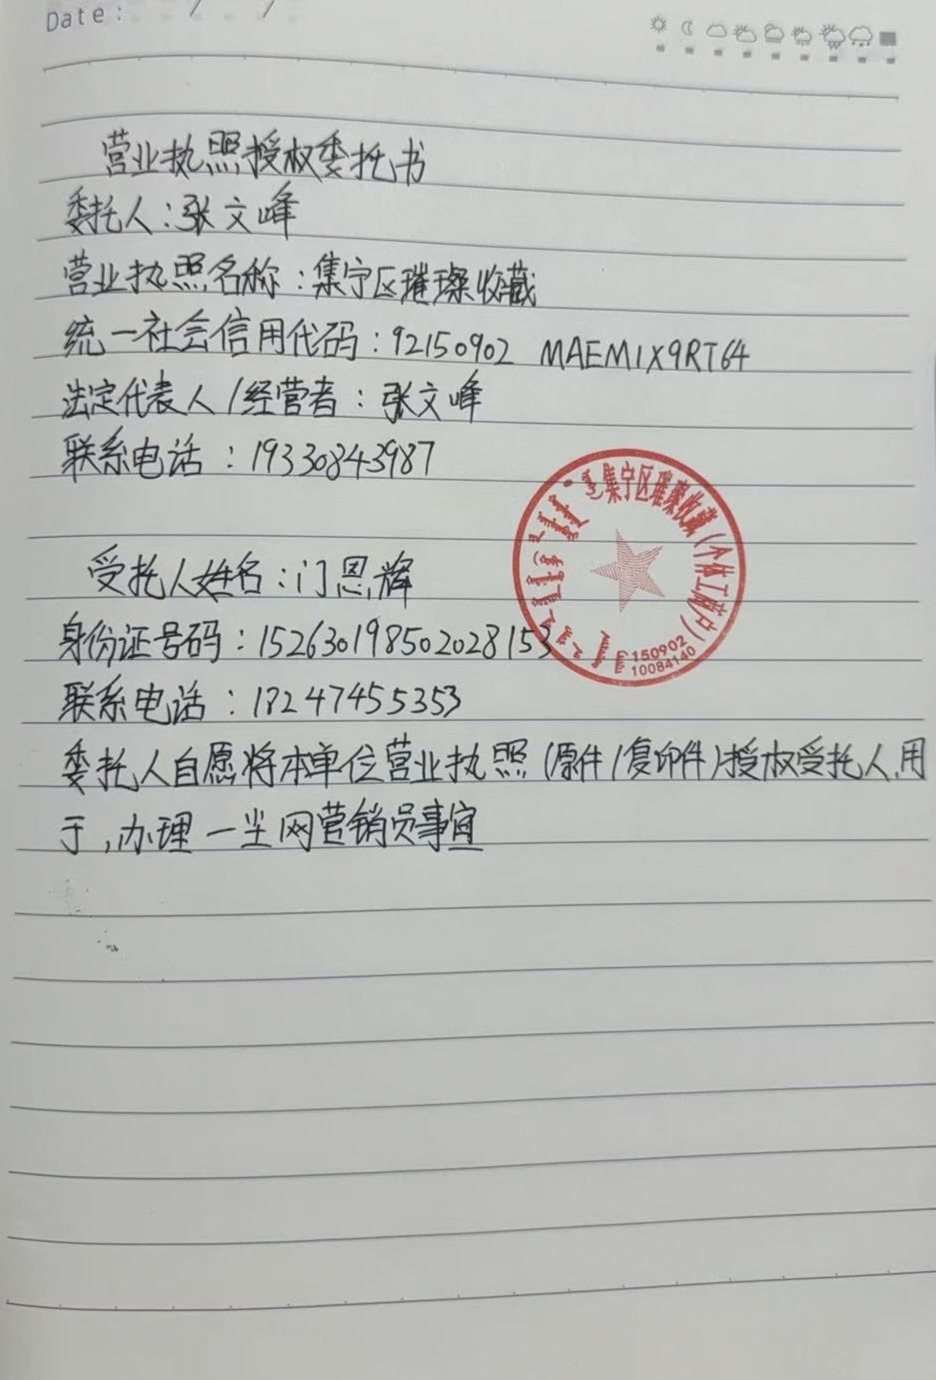 Date: / /
营业执照授权委托书
委托人:张文峰
营业执照名称:集宁区璀璨收藏
统一社会信用代码:92150902 MAEM1X9RT64
法定代表人/经营者:张文峰
联系电话:19330843987
集宁区璀璨收藏(个体工商户)
150902
10084140
受托人姓名:门恩辉
身份证号码:152630198502028153
联系电话:18247455353
委托人自愿将本单位营业执照(原件/复印件)授权受托人,用
于,办理一尘网营销员事宜